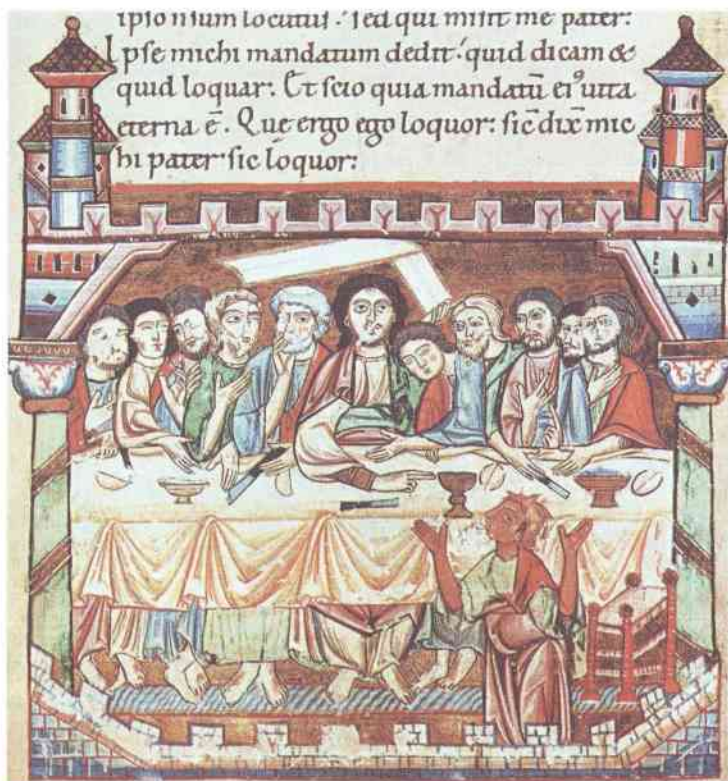 ipso nsum locutus. sed qui misit me pater:
Ipse michi mandatum dedit. quid dicam &
quid loquar. Et scio quia mandatū eiꝰ uita
eterna ē. Que ergo ego loquor: sic̄ dix̄ mic
hi pater sic loquor: